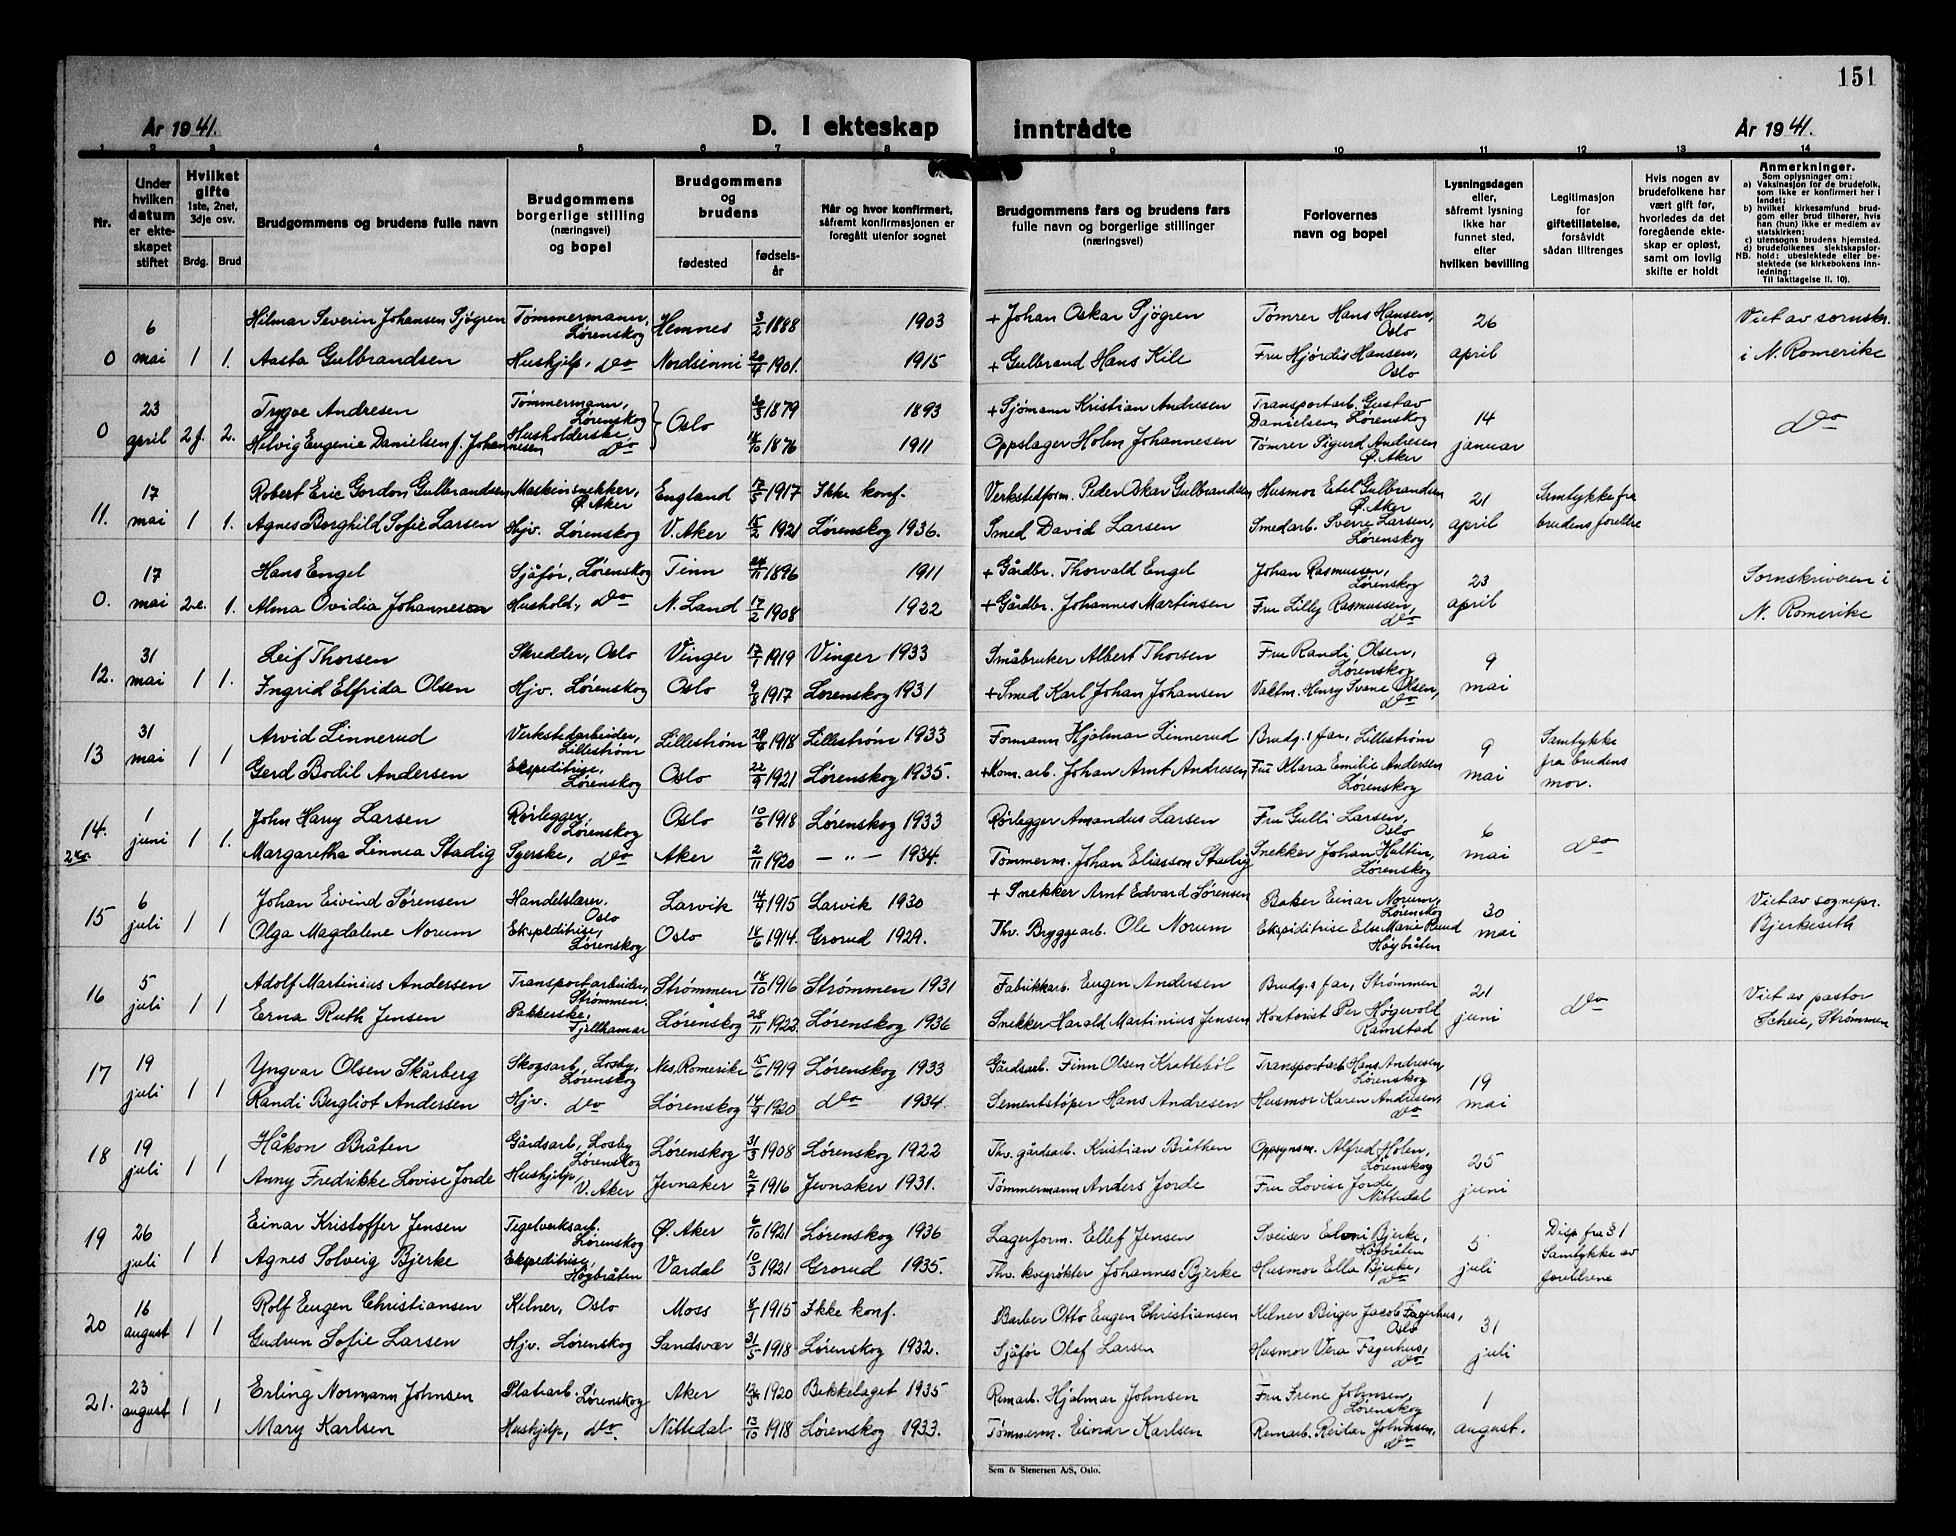 151
År 1941.
D. I ekteskap inntrådte
År 1941.
1 2 3 4 5 6 7 8 9 10 11 12 13 14
Nr.
Under hvilken datum er ekteskapet stiftet
Hvilket gifte 1ste, 2net, 3dje osv.
Brdg. Brud
Brudgommens og brudens fulle navn
Brudgommens og brudens borgerlige stilling (næringsvei) og bopel
Brudgommens og brudens
fødested
fødselsår
Når og hvor konfirmert, såfremt konfirmasjonen er foregått utenfor sognet
Brudgommens fars og brudens fars fulle navn og borgerlige stillinger (næringsvei)
Forlovernes navn og bopel
Lysningsdagen eller, såfremt lysning ikke har funnet sted, eller hvilken bevilling
Legitimasjon for giftetillatelse, forsåvidt sådan tiltrenges
Hvis nogen av brudefolkene har vært gift før, hvorledes da det foregående ekteskap er opløst, samt om lovlig skifte er holdt
Anmerkninger.
Som oplysninger om:
a) Vaksinasjon for de brudefolk, som ikke er konfirmert her i landet;
b) hvilket kirkesamfund brudgom eller brud tilhører, hvis han (hun) ikke er medlem av statskirken;
c) utensogns brudens hjemsted.
d) brudefolkenes slektskapsforhold: ubeslektede eller beslektede (se kirkebokens innledning:
NB. Til iakttagelse II. 10).
0 6 mai 1 1. Hilmar Severin Johansen Sjøgren Tømmermann, Lørenskog Hemnes 3/2 1888 1903 + Johan Oskar Sjögren Tømrer Hans Hansen, Oslo 26 april Viet av sornskr.
Aasta Gulbrandsen Hushjelp, do Nordsinni 20/4 1901. 1915 + Gulbrand Hans Kile Fru Hjørdis Hansen, Oslo i N. Romerike
0 23 april 2f. 2. Trygve Andresen Tømmermann, Lørenskog Oslo 30/3 1879 1893 + Sjömann Kristian Andresen Transportarb. Gustav Danielsen, Lørenskog 14 januar do
Helvig Eugenie Danielsen f. Johannesen Husholderske, do 14/10 1876 1911 Oppslager Holm Johannesen Tømrer Sigurd Andresen Ø. Aker
11. 17 mai 1 1. Robert Eric Gordon Gulbrandsen Maskinsnekker, Ø. Aker England 17/5 1917 Ikke konf. Verkstedform. Peder Oskar Gulbrandsen Husmor Edel Gulbrandsen Ø. Aker 21 april Samtykke fra
Agnes Borghild Sofie Larsen Hjv. Lørenskog V. Aker 15/2 1921 Lørenskog 1936. Smed David Larsen Smedarb. Sverre Larsen, Lørenskog brudens foreldre
0. 17 mai 2e. 1. Hans Engel Sjåfør, Lørenskog Tinn 24/11 1896 1911 + Gårdbr. Thorvald Engel Johan Rasmussen, Lørenskog 23 april Sornskriveren i
Alma Ovidia Johannesen Hushold., do N. Land 17/2 1908 1922 + Gårdbr. Johannes Martinsen Fru Lilly Rasmussen, do N. Romerike
12. 31 mai 1 1. Leif Thorsen Skredder, Oslo Vinger 17/1 1919 Vinger 1933 Småbruker Albert Thorsen Fru Randi Olsen, Lørenskog 9 mai
Ingrid Elfrida Olsen Hjv. Lørenskog Oslo 9/8 1917 Lørenskog 1931 + Smed Karl Johan Johansen Vaktm. Henry Svane Olsen, do
13 31 mai 1 1 Arvid Linnerud Verkstedarbeider, Lillestrøm Lillestrøm 1918 Lillestrøm 1933 Formann Hjalmar Linnerud Brudg.s far, Lillestrøm 9 mai Samtykke
Gerd Bodil Andersen Ekspeditrise, Lørenskog Oslo 22/9 1921 Lørenskog 1935. + Kom. arb. Johan Arnt Andresen Fru Klara Emilie Andersen Lørenskog fra brudens mor.
14. 1 juni 1 1. John Harry Larsen Rørlegger, Lørenskog Oslo 10/6 1918 Lørenskog 1933 Rørlegger Amandus Larsen Fru Gulli Larsen, Oslo 6 mai do
Margaretha Linnea Stadig Syerske, do Aker 2/11 1920 — „ — 1934. Tømmerm. Johan Eliasson Stadig Snekker Johan Hultin, Lørenskog
15 6 juli 1 1 Johan Eivind Sørensen Handelslærer. Oslo Larvik 14/4 1915 Larvik 1930 + Snekker Arnt Edvard Sørensen Baker Einar Norum, Lørenskog 30 mai Viet av sognepr.
Olga Magdalene Norum Ekspeditrise, Lørenskog Oslo 14/6 1914. Grorud 1929. Thv. Bryggearb. Ole Norum Ekspeditrise Else Marie Ruud Høybråten Bjerkeseth
16 5 juli 1 1 Adolf Martinius Andersen Transportarbeider, Strømmen. Strømmen 18/10 1916 Strømmen 1931 Fabrikkarb. Eugen Andersen Brudg.s far, Strømmen 21 juni do Viet av pastor
Erna Ruth Jensen Pakkerske, Fjellhamar Lørenskog 28/11 1922. Lørenskog 1936 Snekker Harald Martinius Jensen Kontorist Per Høgevold Ramstad Scheie, Strømmen
17 19 juli 1 1 Yngvar Olsen Skårberg Skogsarb., Losby, Lørenskog Nes, Romerike 15/6 1919 Lørenskog 1933 Gårdsarb. Finn Olsen Krattebøl Transportarb. Hans Andresen, Lørenskog 19 mai
Randi Bergliot Andersen Hjv. do Lørenskog 14/9 1920 do 1934. Sementstøper Hans Andresen Husmor Karen Andresen, do
18 19 juli 1 1 Håkon Bråten Gårdsarb, Losby Lørenskog Lørenskog 31/3 1908 Lørenskog 1922 Thv. gårdsarb. Kristian Bråthen Oppsynsm. Alfred Holen, Lørenskog 25 juni
Anny Fredrikke Lovise Jorde Hushjelp, V. Aker Jevnaker 2/7 1916 Jevnaker 1931. Tømmermann Anders Jorde Fru Lovise Jorde Nittedal
19 26 juli 1 1 Einar Kristoffer Jensen Teglverksarb. Lørenskog Ø. Aker 6/10 1921 Lørenskog 1936 Lagerform. Ellef Jensen Sveiser Bjerke, Høybråten 5 juli Disp fra § 1
Agnes Solveig Bjerke Ekspeditrise, Høybråten Vardal 10/3 1921 Grorud 1935. Thv. kvegrøkter Johannes Bjerke Husmor Ella Bjerke, do Samtykke av foreldrene
20 16 august 1 1 Rolf Eugen Christiansen Kelner, Oslo Moss 1915 Ikke konf. Barber Otto Eugen Christiansen Kelner Birger Jacob Fagerhus, Oslo 31 juli
Gudrun Sofie Larsen Hjv. Lørenskog Sandsvær 31/5 1918 Lørenskog 1932. Sjåfør Olaf Larsen Husmor Vera Fagerhus, do
21. 23 august 1 1 Erling Normann Johnsen Platearb. Lørenskog Aker 1920 Bekkelaget 1935 Remarb. Hjalmar Johnsen Fru Irene Johnsen, Lørenskog 1 august.
Mary Karlsen Hushjelp, do. Nittedal 13/10 1918 Lørenskog 1933. Tømmerm. Einar Karlsen Remarb. Reidar Johnsen, do
Sem & Stenersen A/S, Oslo.